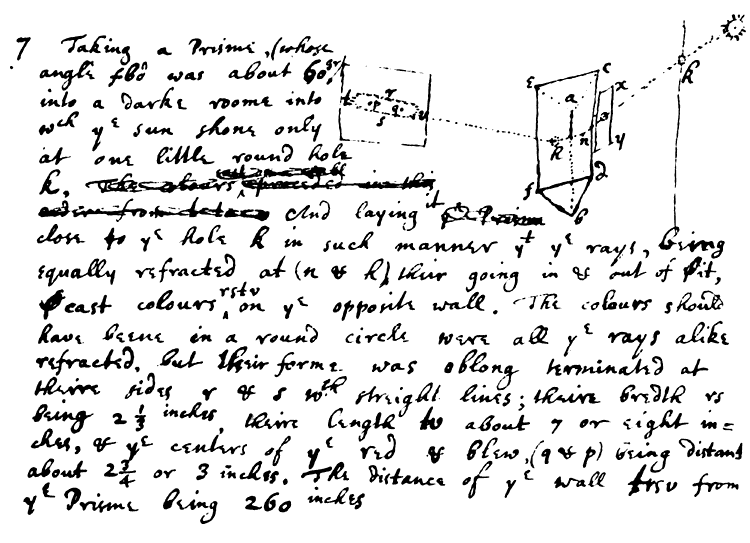 7 Taking a Prisme, (whose
angle fbd was about 60gr)
into a darke roome into
wch ye sun shone only
at one little round hole
k, And laying it
close to ye hole k in such manner yt ye rays, being
equally refracted at (n & h) their going in & out of it,
cast colours rstv on ye opposite wall. The colours should
have beene in a round circle were all ye rays alike
refracted, but their forme was oblong terminated at
theire sides r & s wth streight lines; theire bredth rs
being 2 1/3 inches, theire length tv about 7 or eight in=
ches, & ye centers of ye red & blew, (q & p) being distant
about 2 3/4 or 3 inches. The distance of ye wall trsv from
ye Prisme being 260 inches
t r p q s v
ε c a x 3 y h n f d b
k